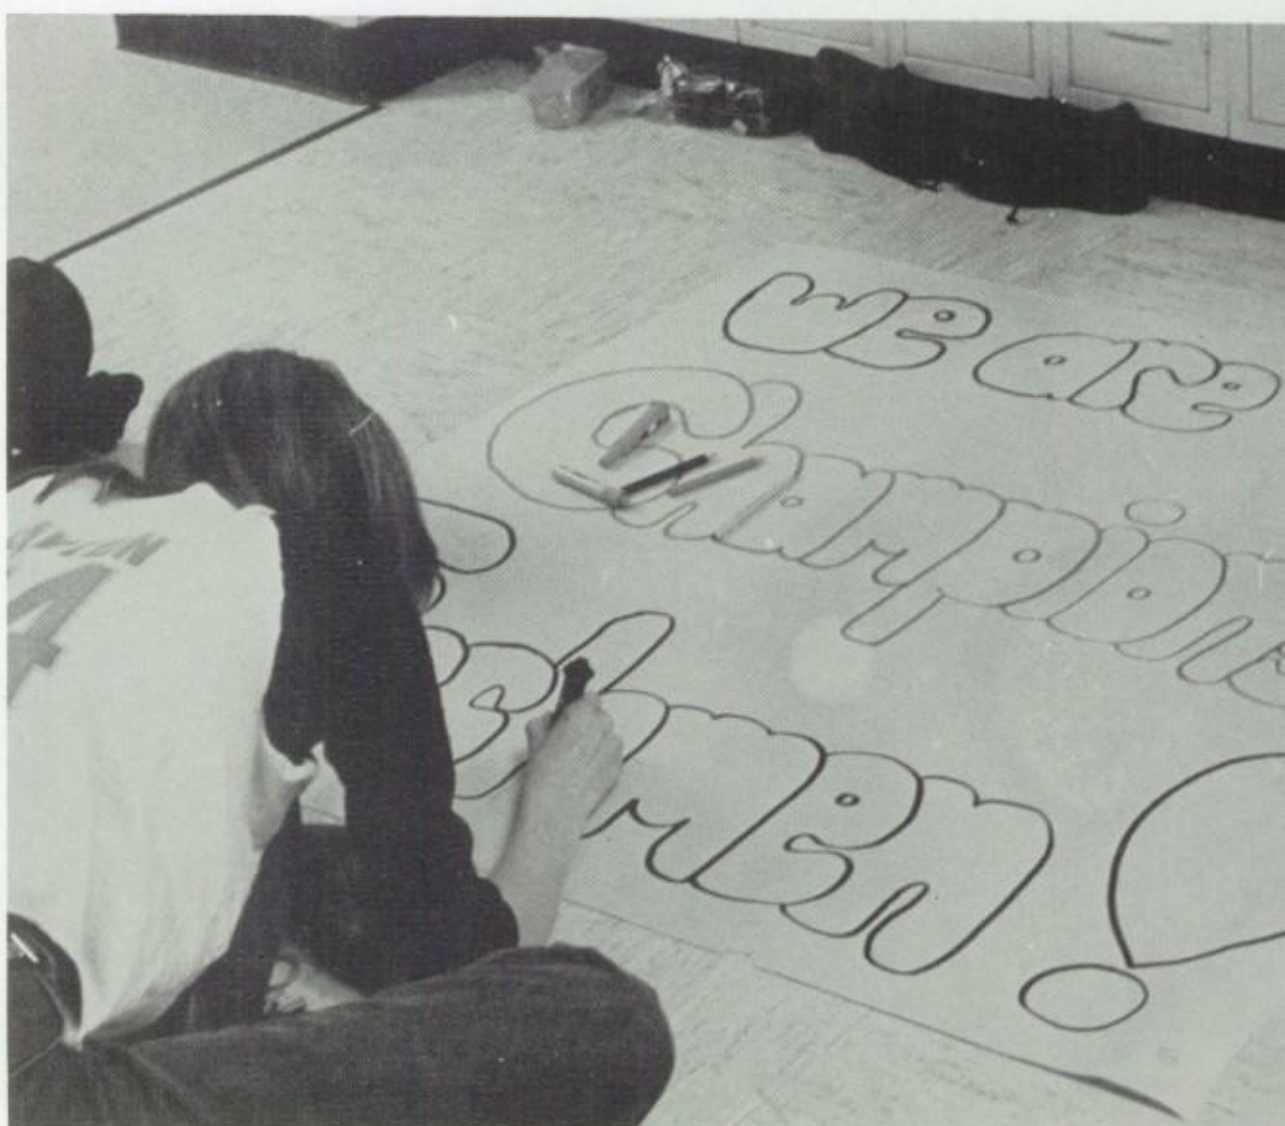 We are
Champions
shmen!
4